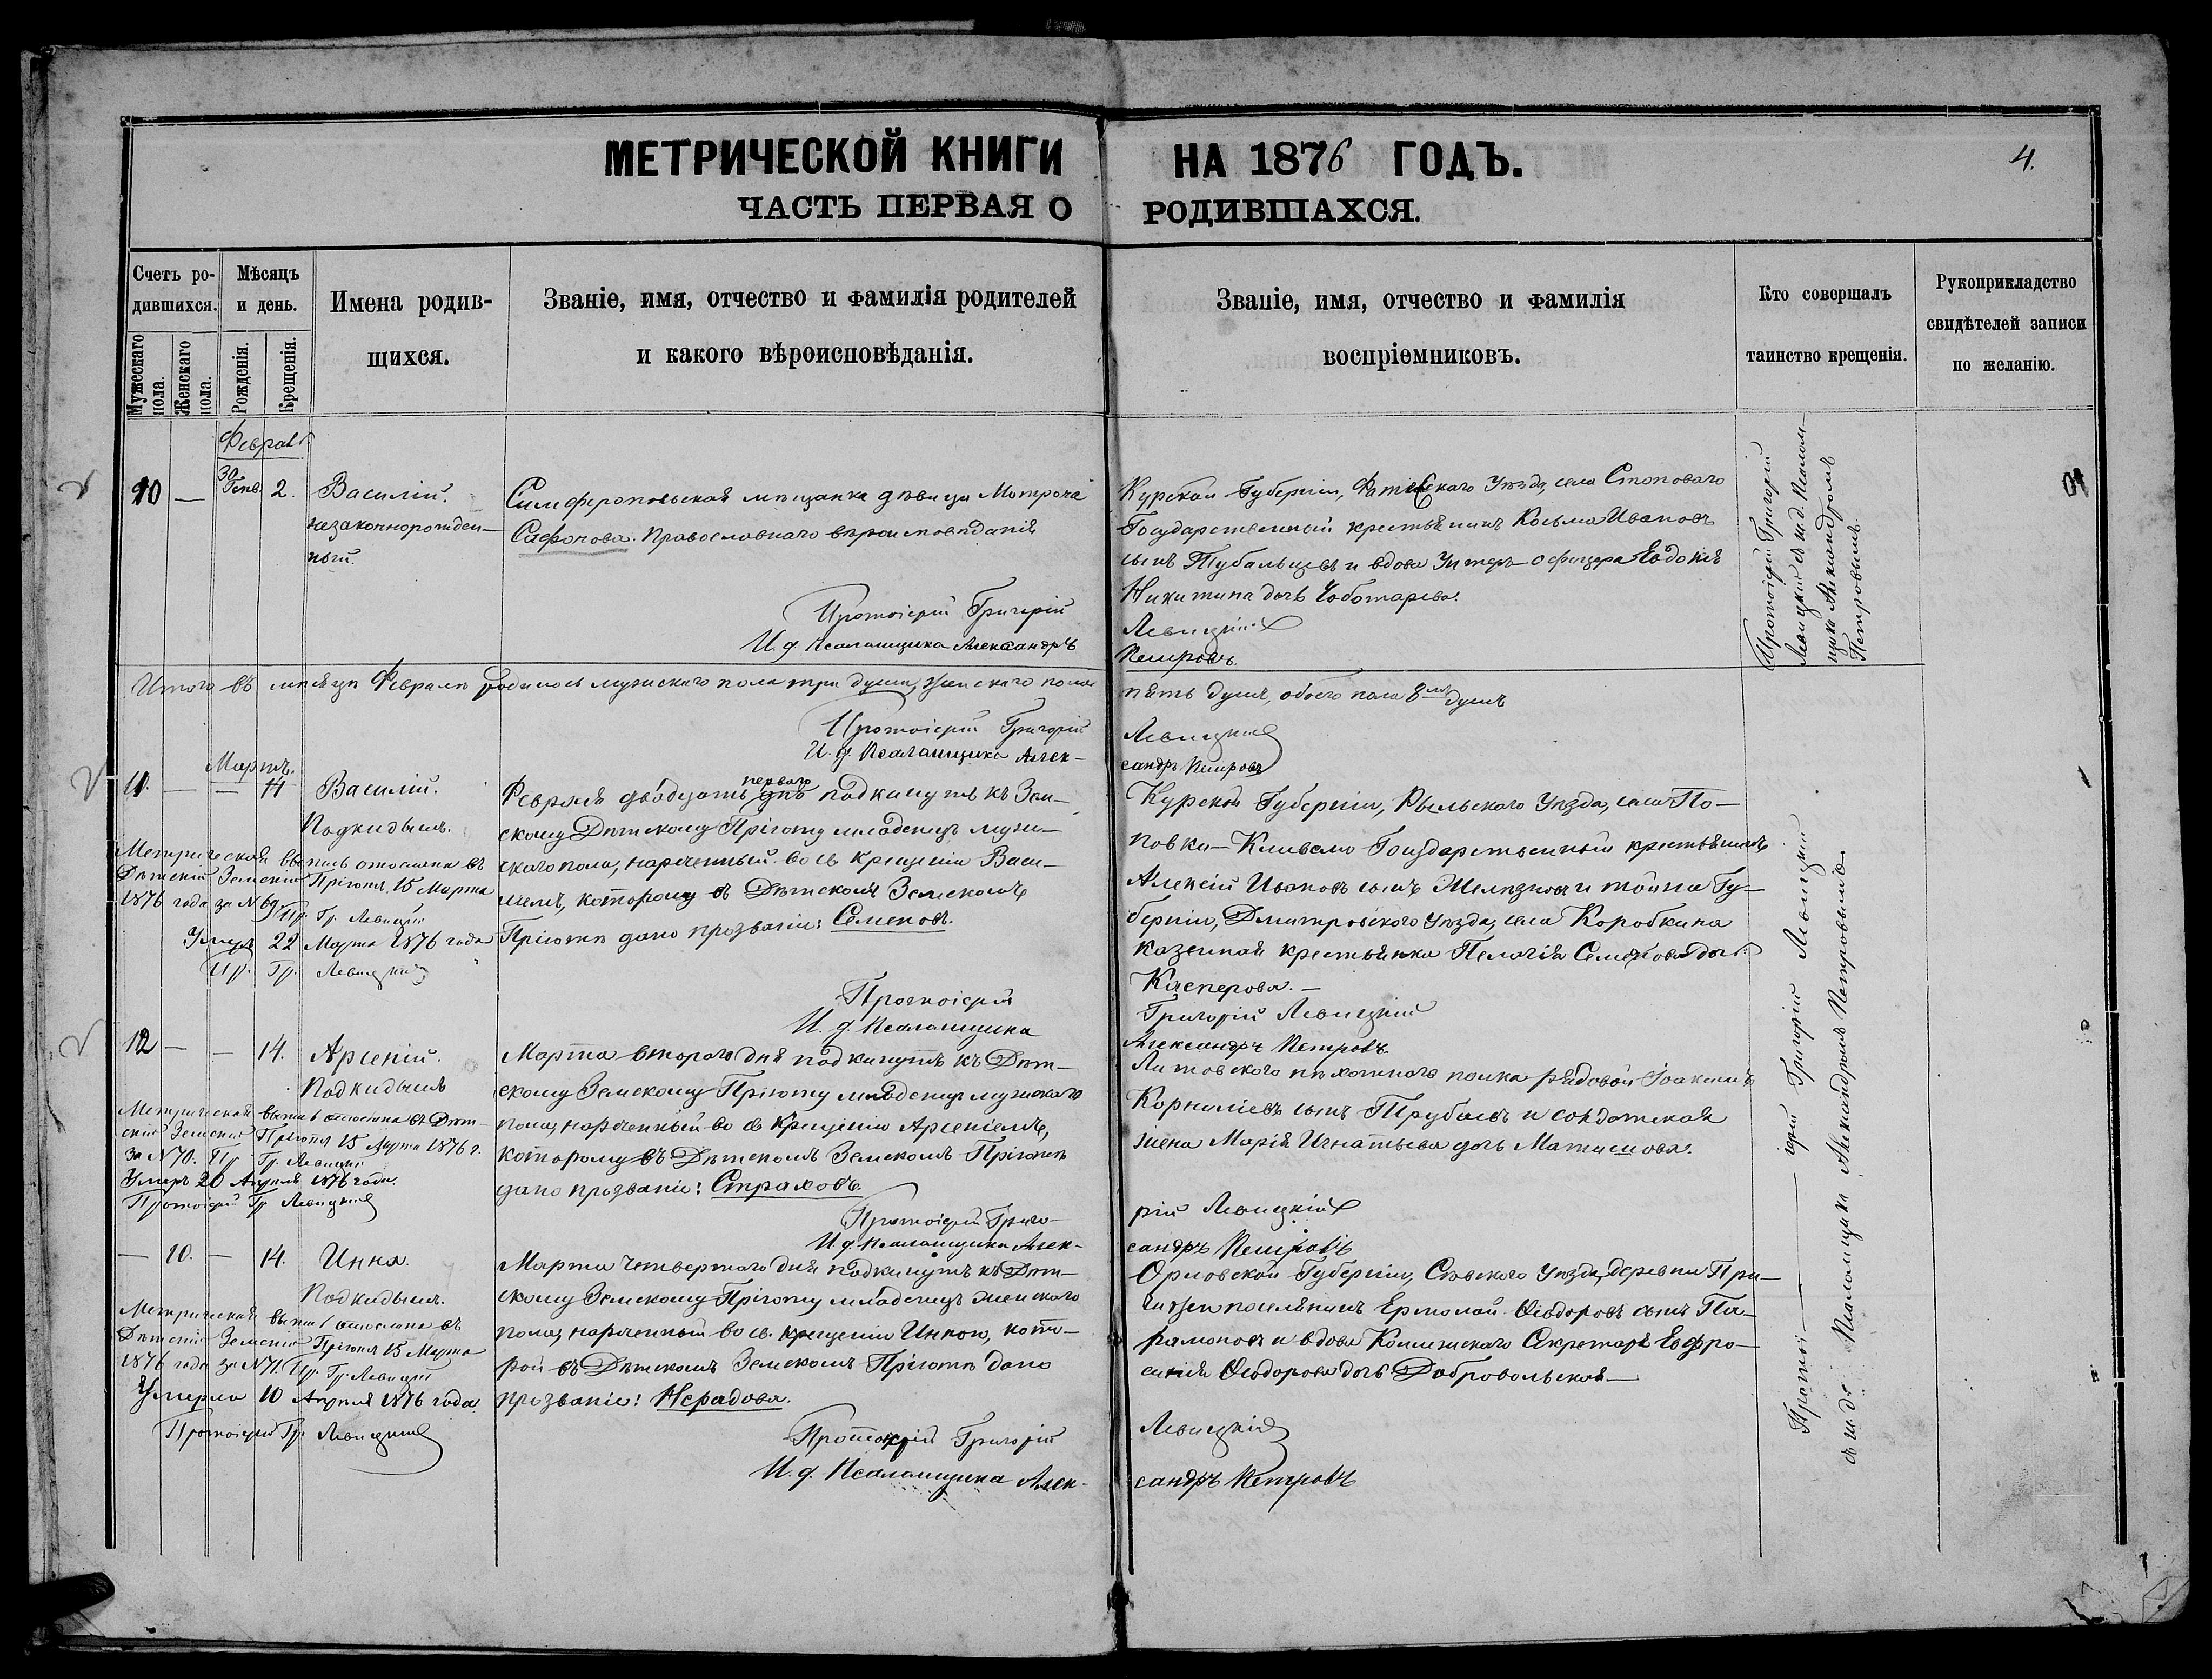 МЕТРИЧЕСКОЙ КНИГИ НА 1876 ГОДЪ.
4.
ЧАСТЬ ПЕРВАЯ О РОДИВШАХСЯ.
Счетъ родившихся.
Мужескаго пола.
Женскаго пола.
Мѣсяцъ и день.
Рожденія.
Крещенія.
Имена родив-
щихся.
Званіе, имя, отчество и фамилія родителей
и какого вѣроисповѣданія.
Званіе, имя, отчество и фамилія
воспріемниковъ.
Кто совершалъ
таинство крещенія.
Рукоприкладство
свидѣтелей записи
по желанію.
Феврал.
10 — 30 Генв. 2.
Василій.
незаконнорожден-
ный.
Симферопольская мѣщанка дѣвица Матрона
Сафонова. Православнаго вѣроисповѣданія
Протоіерей Григорій
И. д. Псаломщика Александръ
Курской Губерніи, Фатежскаго Уѣзда, села
Государственный крестьянинъ Косьма Ивановъ
сынъ и вдова Унтеръ-офицера Евдокія
Никитина дочь Чоботарева.
Левицкій
Петровъ.
Протоіерей Григорій
Левицкій съ и. д. Псалом-
щика Александромъ
Петровымъ.
Итого въ мѣсяцѣ Февралѣ родилось мужскаго пола три души, женскаго пола
пять душъ, обоего пола 8мь душъ
Протоіерей Григорій
И. д. Псаломщика Алек-
Левицкій
сандръ Петровъ
Мартъ.
11. — — 14
Василій.
Подкидышъ.
Метрическая выпись отослана въ
Дѣтскій Земскій Пріютъ, 15 Марта
1876 года за N 69. Пр. Гр. Левицкій
Умеръ 22 Марта 1876 года
Пр. Гр. Левицкій
Февраля двадцать перваго дня подкинутъ къ Зем-
скому Дѣтскому Пріюту младенецъ муж-
скаго пола, нареченный во св. крещеніи Васи-
ліемъ, которому въ Дѣтскомъ Земскомъ
Пріютѣ дано прозваніе: Семеновъ.
Протоіерей
И. д. Псаломщика
Курской Губерніи, Рыльскаго Уѣзда, села По-
повки- Государственный крестьянинъ
Алексій Ивановъ сынъ и того Гу-
берніи, Дмитровскаго Уѣзда, села Коробкина
казенная крестьянка Пелагія Семенова дочь
Касперова. —
Григорій Левицкій
Александръ Петровъ
12 — — 14.
Арсеній.
Подкидышъ
Метрическая выпись отослана въ Дѣт-
скій Земскій Пріютъ 15 Марта 1876 г.
за N 70. Пр. Гр. Левицкій
Умеръ 20 Апрѣля 1876 года.
Протоіерей Гр. Левицкій
Марта втораго дня подкинутъ къ Дѣт-
скому Земскому Пріюту младенецъ мужскаго
пола, нареченный во св. крещеніи Арсеніемъ,
которому въ Дѣтскомъ Земскомъ Пріютѣ
дано прозваніе: Страховъ.
Протоіерей Григо-
И. д. Псаломщика Алек-
Литовскаго пѣхотнаго полка рядовой Іоакимъ
Корниліевъ сынъ и солдатская
жена Марія Игнатьева дочь
рій Левицкій
сандръ Петровъ
— 10. — 14.
Инна.
Подкидышъ.
Метрическая выпись отослана въ
Дѣтскій Земскій Пріютъ 15 Марта
1876 года за N 71. Пр. Гр. Левицкій
Умерла 10 Апрѣля 1876 года.
Протоіерей Гр. Левицкій
Марта четвертаго дня подкинутъ къ Дѣт-
скому Земскому Пріюту младенецъ женскаго
пола, нареченный во св. крещеніи Инною, кото-
рой въ Дѣтскомъ Земскомъ Пріютѣ дано
прозваніе: Нерадова.
Протоіерей Григорій
И. д. Псаломщика Алек-
Орловской Губерніи, Сѣвскаго Уѣзда, деревни
поселянинъ Ермолай Ѳеодоровъ сынъ Па-
рамоновъ и вдова Коллежскаго Секретаря Евфро-
синія Ѳеодорова дочь Добровольская —
Левицкій
сандръ Петровъ
Протоі — ерей Григорій Левицкій
съ и. д. Псаломщика Александромъ Петровымъ.